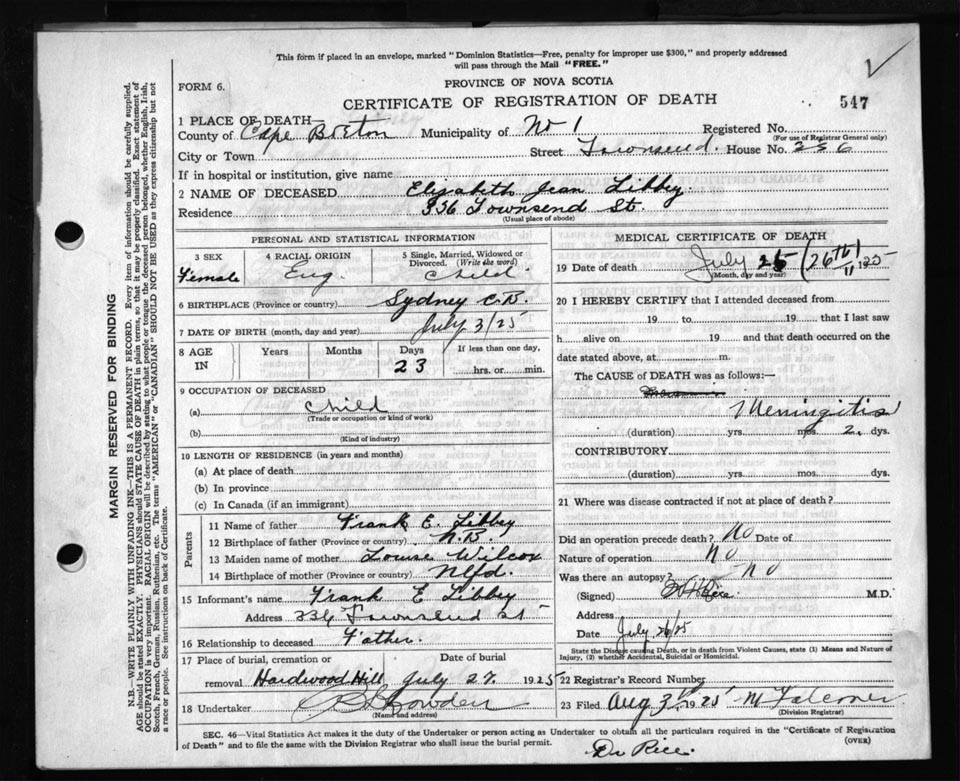 This form if placed in an envelope, marked "Dominion Statistics—Free, penalty for improper use $300," and properly addressed
will pass through the Mail "FREE."
FORM 6.
PROVINCE OF NOVA SCOTIA
CERTIFICATE OF REGISTRATION OF DEATH
547
1 PLACE OF DEATH
County of Cape Breton Municipality of No 1 Registered No.
(For use of Registrar General only)
City or Town Street Townsend. House No.
If in hospital or institution, give name
2 NAME OF DECEASED Elisabeth Jean Libby.
Residence 336 Townsend St.
(Usual place of abode)
PERSONAL AND STATISTICAL INFORMATION
3 SEX Female
4 RACIAL ORIGIN Eng.
5 Single, Married, Widowed or Divorced. (Write the word) Child.
6 BIRTHPLACE (Province or country) Sydney C.B.
7 DATE OF BIRTH (month, day and year) July 3/25
8 AGE IN Years Months Days 23 If less than one day, hrs. or min.
9 OCCUPATION OF DECEASED
(a) Child
(Trade or occupation or kind of work)
(b)
(Kind of industry)
10 LENGTH OF RESIDENCE (in years and months)
(a) At place of death
(b) In province
(c) In Canada (if an immigrant)
Parents
11 Name of father Frank E. Libby
12 Birthplace of father (Province or country) N.B.
13 Maiden name of mother Louise Wilcox
14 Birthplace of mother (Province or country) Nfld.
15 Informant's name Frank E Libby
Address 336 Townsend St
16 Relationship to deceased Father.
17 Place of burial, cremation or Date of burial
removal Hardwood Hill July 27. 1925
18 Undertaker
(Name and address)
MEDICAL CERTIFICATE OF DEATH
19 Date of death July 25 (26th) 1925
(Month, day and year)
20 I HEREBY CERTIFY that I attended deceased from
19 to 19 that I last saw
h alive on 19 and that death occurred on the
date stated above, at m.
The CAUSE of DEATH was as follows:—
Meningitis
(duration) yrs. mos. 2. dys.
CONTRIBUTORY
(duration) yrs. mos. dys.
21 Where was disease contracted if not at place of death?
Did an operation precede death? No Date of
Nature of operation No
Was there an autopsy? No
(Signed) Rice M.D.
Address
Date July 26/25
State the Disease causing Death, or in death from Violent Causes, state (1) Means and Nature of
Injury, (2) whether Accidental, Suicidal or Homicidal.
22 Registrar's Record Number
23 Filed Aug 31 1925
(Division Registrar)
SEC. 46—Vital Statistics Act makes it the duty of the Undertaker or person acting as Undertaker to obtain all the particulars required in the "Certificate of Registration
of Death" and to file the same with the Division Registrar who shall issue the burial permit. (OVER)
Dr Rice.
MARGIN RESERVED FOR BINDING
N.B.—WRITE PLAINLY WITH UNFADING INK—THIS IS A PERMANENT RECORD. Every item of information should be carefully supplied.
AGE should be stated EXACTLY. PHYSICIANS should STATE CAUSE OF DEATH in plain terms, so that it may be properly classified. Exact statement of
OCCUPATION is very important. RACIAL ORIGIN will be described by stating to what people or tongue the deceased person belonged, whether English, Irish,
Scotch, French, German, Russian, Ruthenian, etc. The terms "AMERICAN" or "CANADIAN" SHOULD NOT BE USED as they express citizenship but not
a race or people. See instructions on back of Certificate.